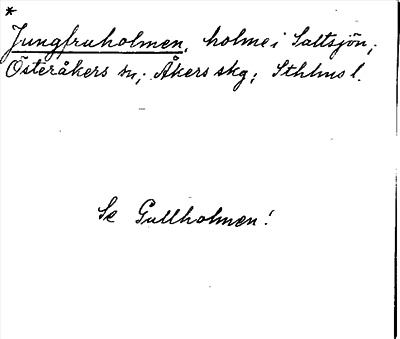 *
Jungfruholmen, holme i Saltsjön;
Österåkers sn; Åkers skg; Sthlms l.
Se Gullholmen!